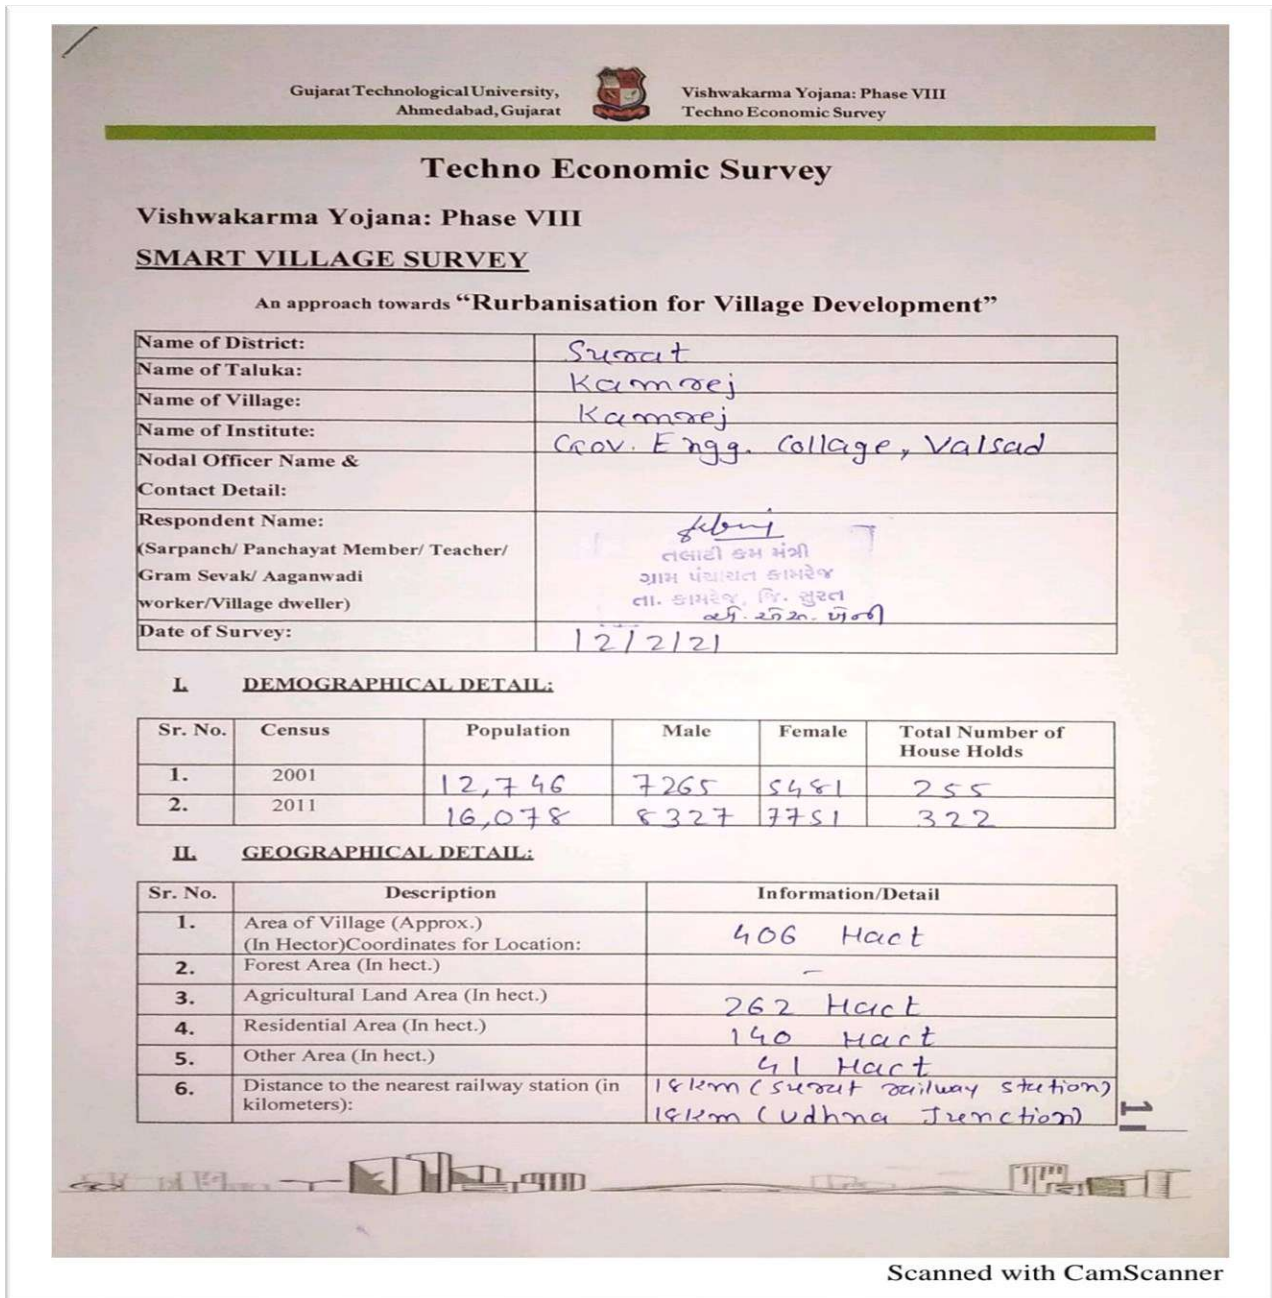 Gujarat Technological University, Vishwakarma Yojana: Phase VIII
Ahmedabad, Gujarat Techno Economic Survey
Techno Economic Survey
Vishwakarma Yojana: Phase VIII
SMART VILLAGE SURVEY
An approach towards “Rurbanisation for Village Development”
Name of District: Surat
Name of Taluka: Kamrej
Name of Village: Kamrej
Name of Institute: Gov. Engg. Collage, Valsad
Nodal Officer Name &
Contact Detail:
Respondent Name:
(Sarpanch/ Panchayat Member/ Teacher/ તલાટી કમ મંત્રી
Gram Sevak/ Aaganwadi ગ્રામ પંચાયત કામરેજ
worker/Village dweller) તા. કામરેજ, જિ. સુરત
Date of Survey: 12/2/21
I. DEMOGRAPHICAL DETAIL:
Sr. No. Census Population Male Female Total Number of
House Holds
1. 2001 12,746 7265 5481 255
2. 2011 16,078 8327 7751 322
II. GEOGRAPHICAL DETAIL:
Sr. No. Description Information/Detail
1. Area of Village (Approx.)
(In Hector)Coordinates for Location: 406 Hact
2. Forest Area (In hect.) -
3. Agricultural Land Area (In hect.) 262 Hact
4. Residential Area (In hect.) 140 Hact
5. Other Area (In hect.) 41 Hact
6. Distance to the nearest railway station (in 18km (Surat railway station)
kilometers): 18km (Udhna Junction)
1
Scanned with CamScanner